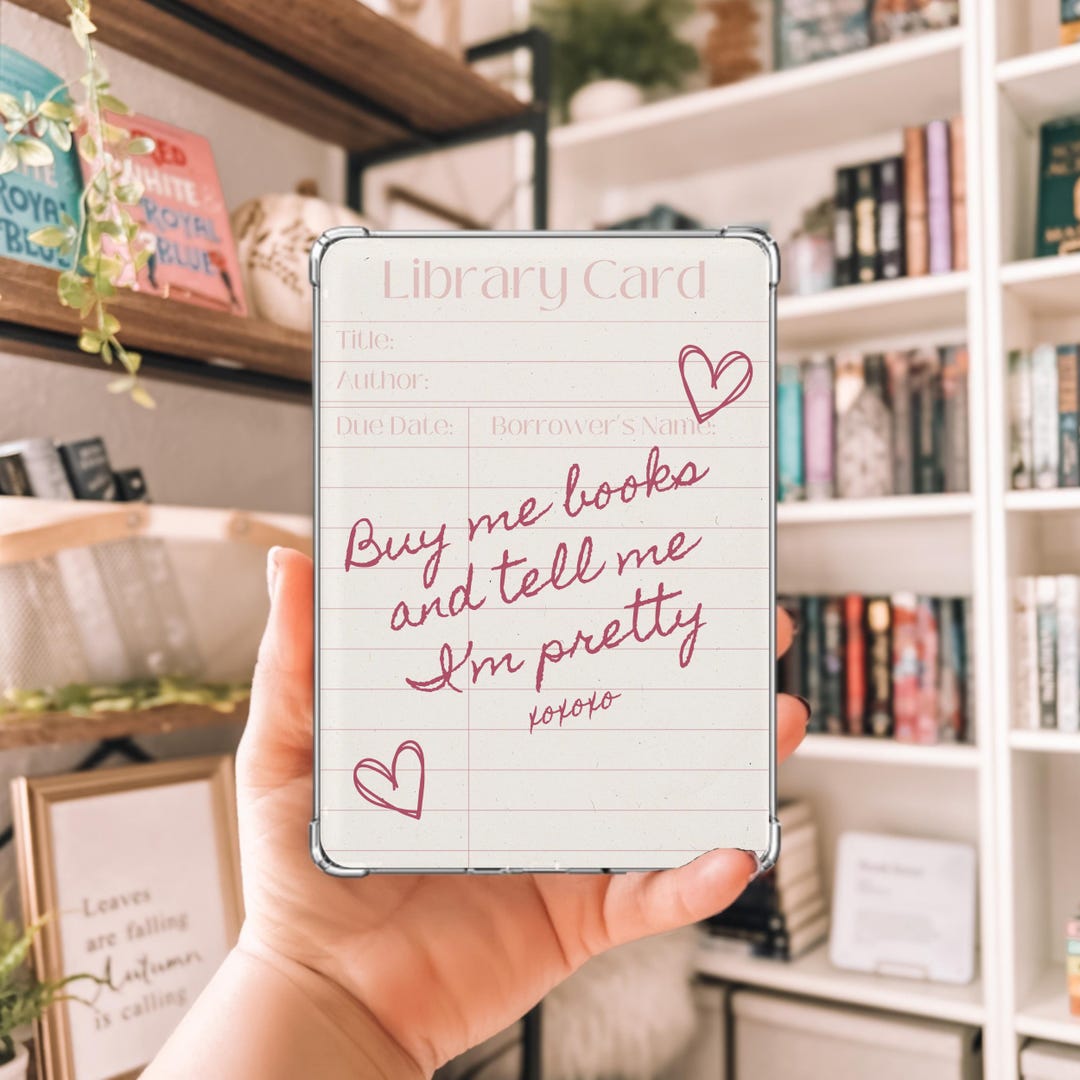 Library Card
Title:
Author:
Due Date:
Borrower's Name:
Buy me books
and tell me
I'm pretty
xoxoxo
RED
WHITE
ROYAL
BLUE
ROYAL
BLUE
Leaves
are falling
Autumn
is calling